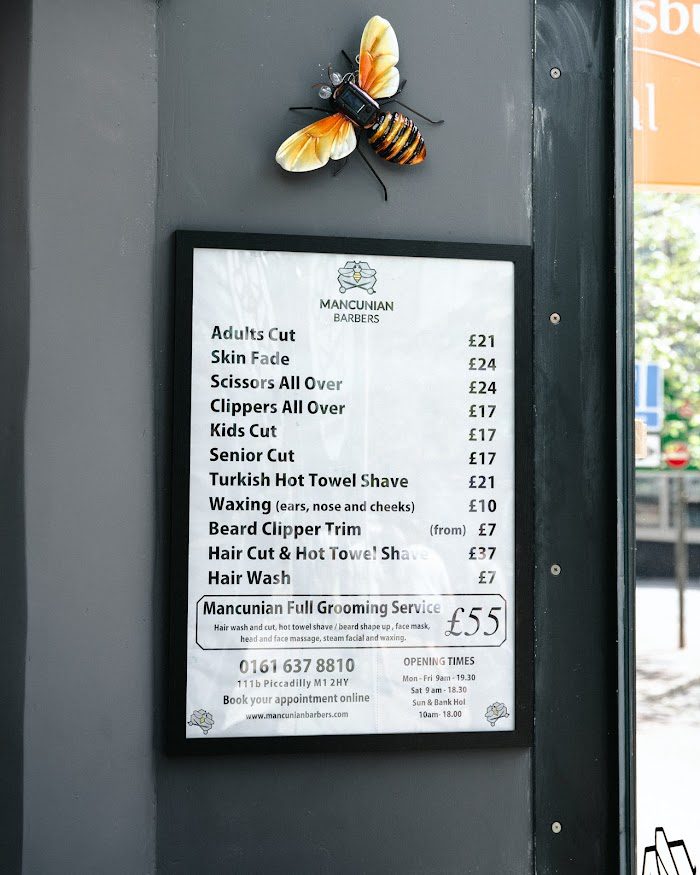 MANCUNIAN
BARBERS
Adults Cut £21
Skin Fade £24
Scissors All Over £24
Clippers All Over £17
Kids Cut £17
Senior Cut £17
Turkish Hot Towel Shave £21
Waxing (ears, nose and cheeks) £10
Beard Clipper Trim (from) £7
Hair Cut & Hot Towel Shave £37
Hair Wash £7
Mancunian Full Grooming Service £55
Hair wash and cut, hot towel shave / beard shape up , face mask,
head and face massage, steam facial and waxing.
0161 637 8810
111b Piccadilly M1 2HY
Book your appointment online
www.mancunianbarbers.com
OPENING TIMES
Mon - Fri 9am - 19.30
Sat 9 am - 18.30
Sun & Bank Hol
10am- 18.00